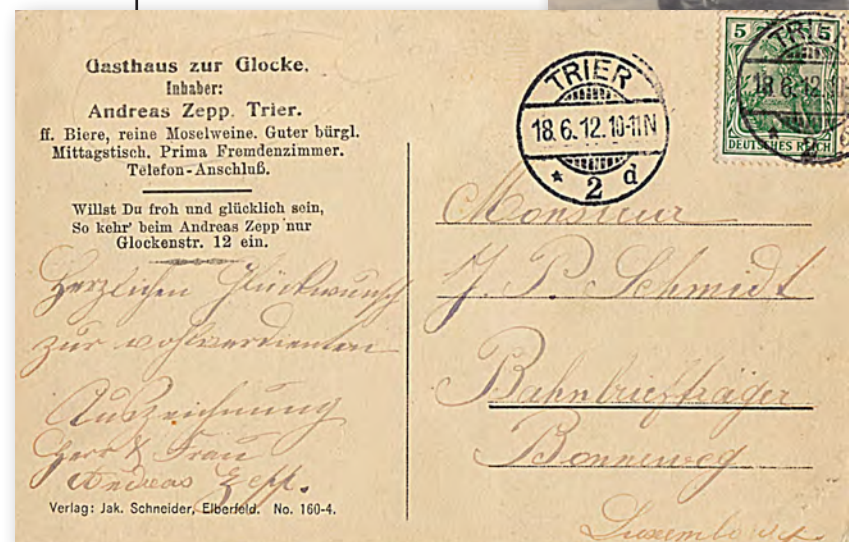 Gasthaus zur Glocke.
Inhaber:
Andreas Zepp. Trier.
ff. Biere, reine Moselweine. Guter bürgl.
Mittagstisch. Prima Fremdenzimmer.
Telefon-Anschluß.
Willst Du froh und glücklich sein,
So kehr' beim Andreas Zepp nur
Glockenstr. 12 ein.
Herzlichen Glückwunsch
zur wohlverdienten
Auszeichnung
Herr & Frau
Andreas Zepp.
Verlag: Jak. Schneider, Elberfeld. No. 160-4.
TRIER
18.6.12.10-11N
* 2 d
5 5
DEUTSCHES REICH
TRIER
18.6.12.10-
Monsieur
J. P. Schmidt
Bahnbriefträger
Bonneweg
Luxembourg